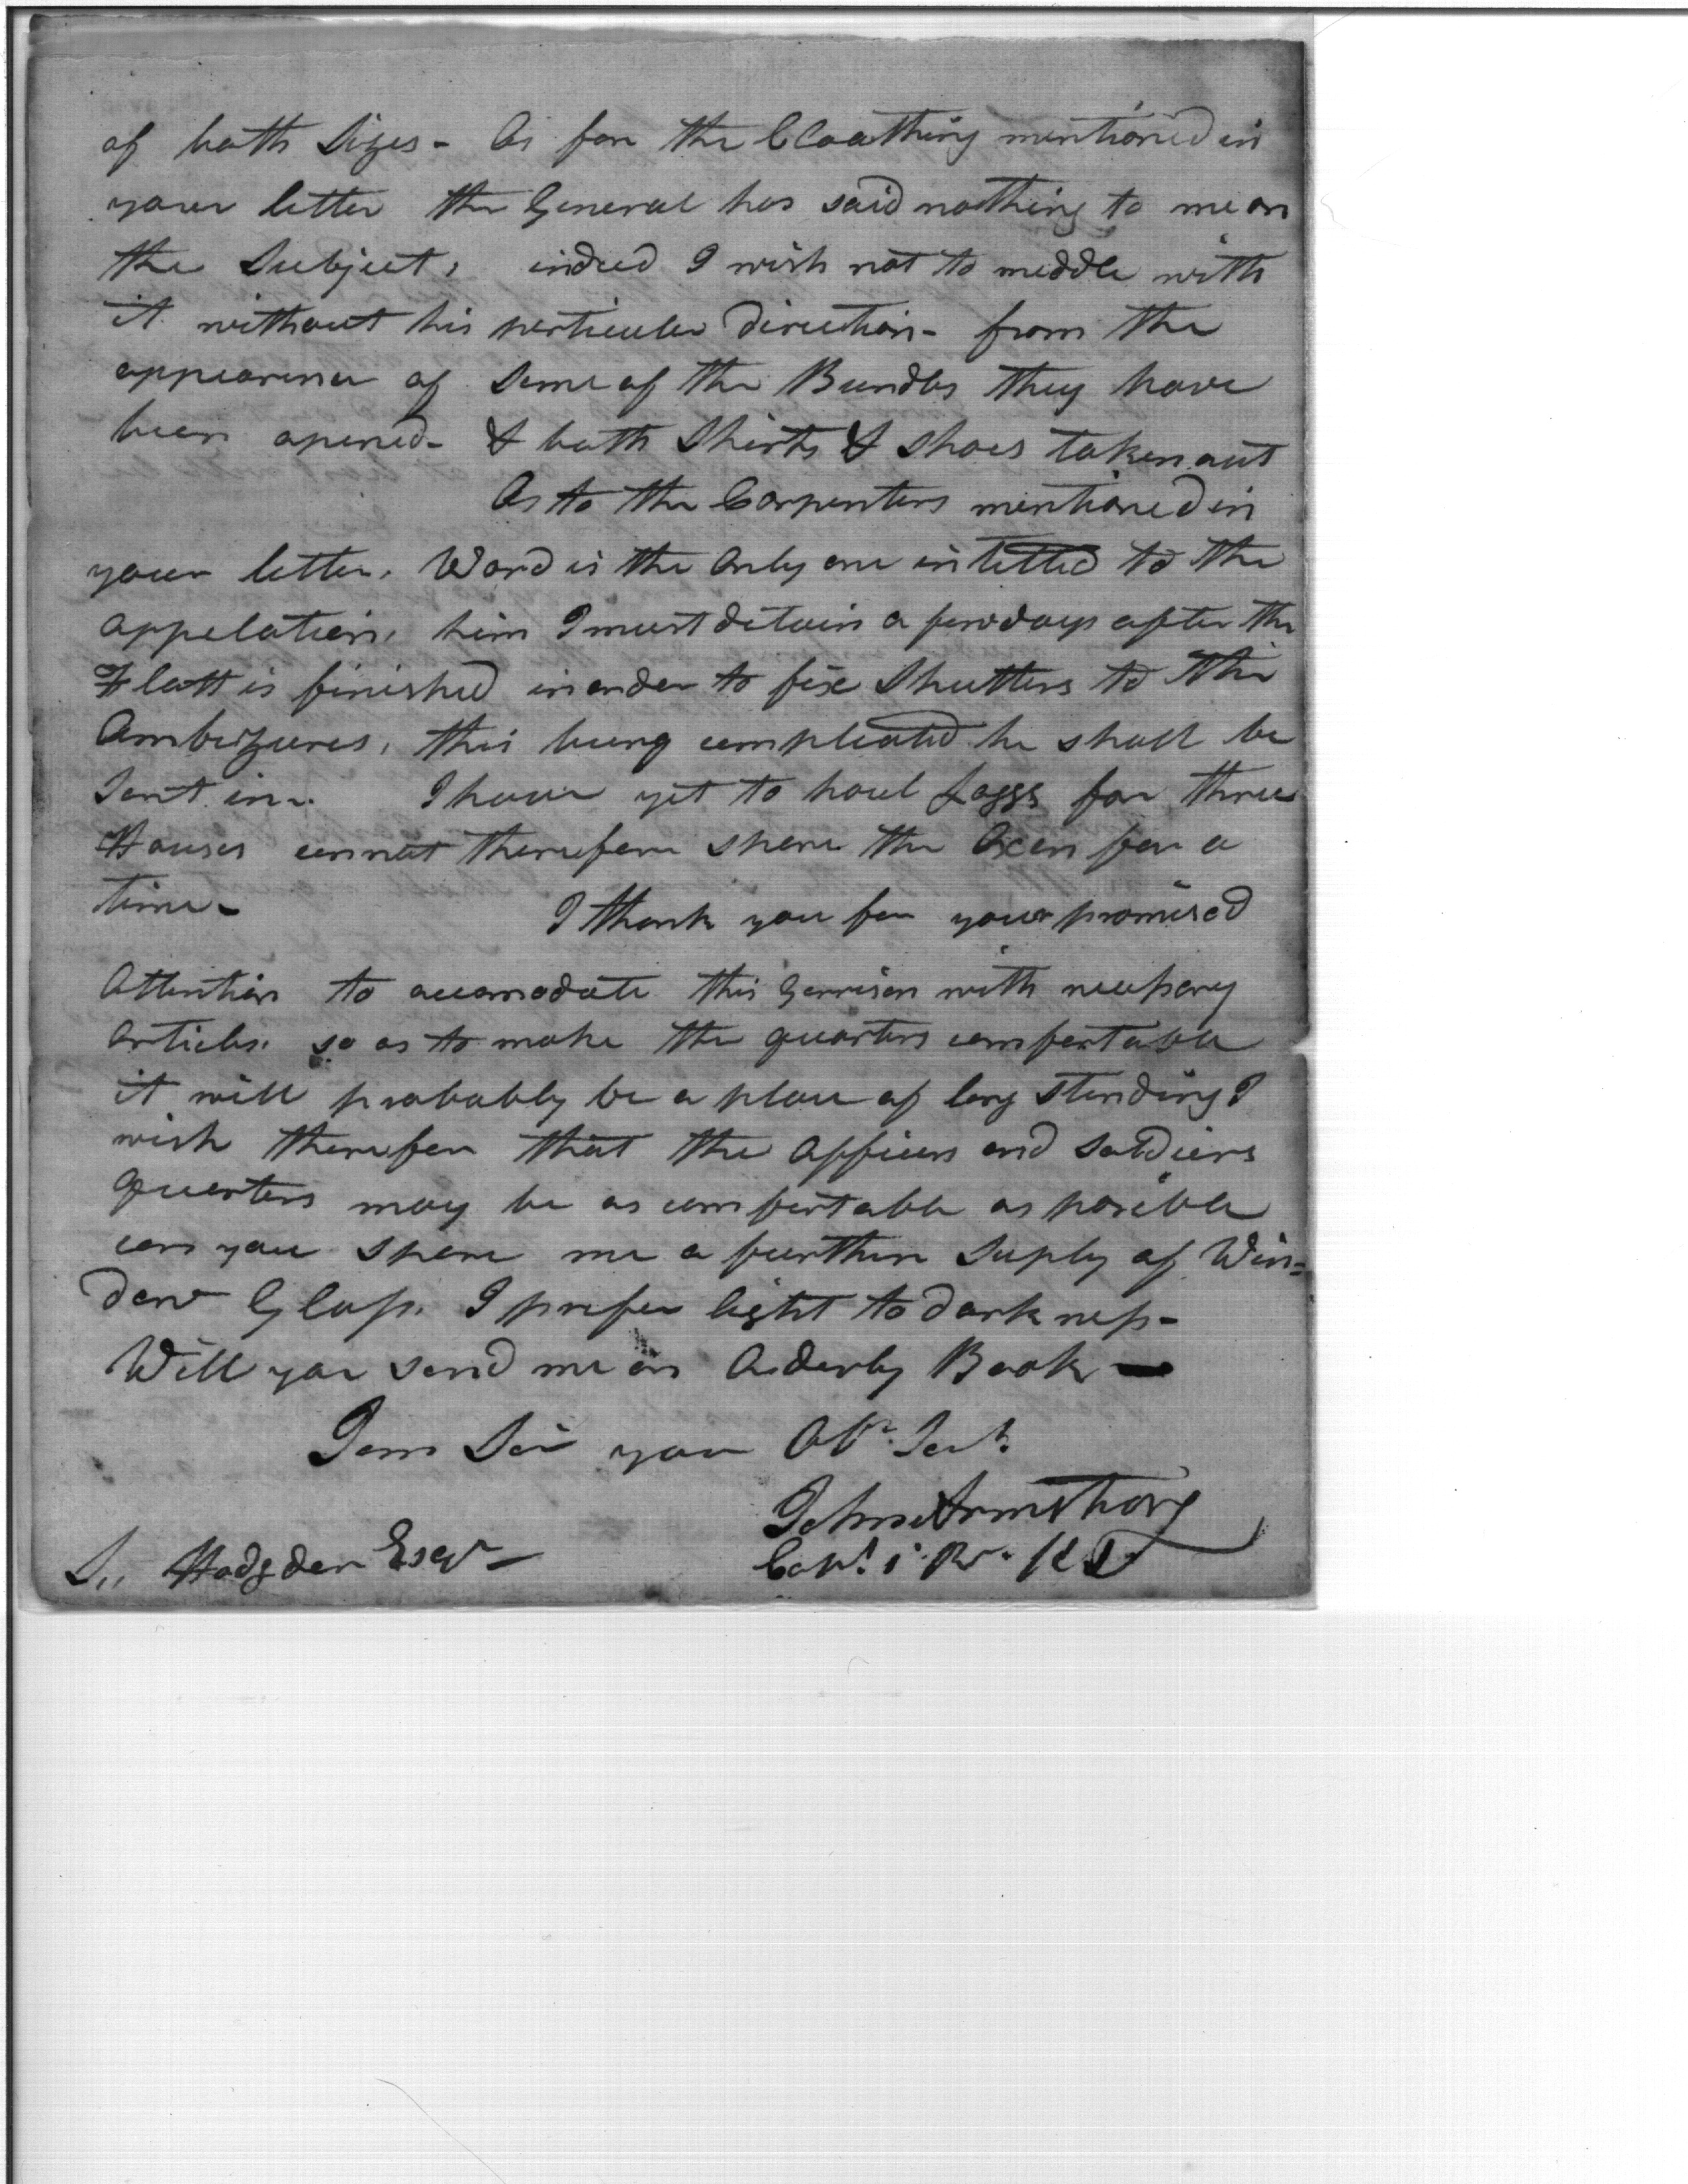 of both Sizes - As for the Cloathing mentioned in
your letter the General has said nothing to me on
the Subject, indeed I wish not to meddle with
it without his perticuler direction - from the
appearence of Some of the Bundles they have
been opened - & both Shirts & Shoes taken out
As to the Carpenters mentioned in
your letter, Ward is the only one intitled to the
appelation, him I must detain a few days after the
Flatt is finished in order to fix Shutters to the
Ambuzures, this being compleated he shall be
Sent in. I have yet to haul Loggs for three
Houses cannot therefore spare the Oxen for a
time -
I thank you for your promised
Attention to accomodate this Garrison with necessary
Articles. so as to make the quarters comfortable
it will probably be a place of long standing I
wish therefor that the officers and soldiers
quarters may be as comfortable as posible
can you spare me a further Suply of Win=
dow Glass. I prefer light to darkness -
Will you send me an Orderly Book -
I am Sir your Obt. Servt.
John Armstrong
Capt. 1 Rt.
S,, Hodgden Esqr